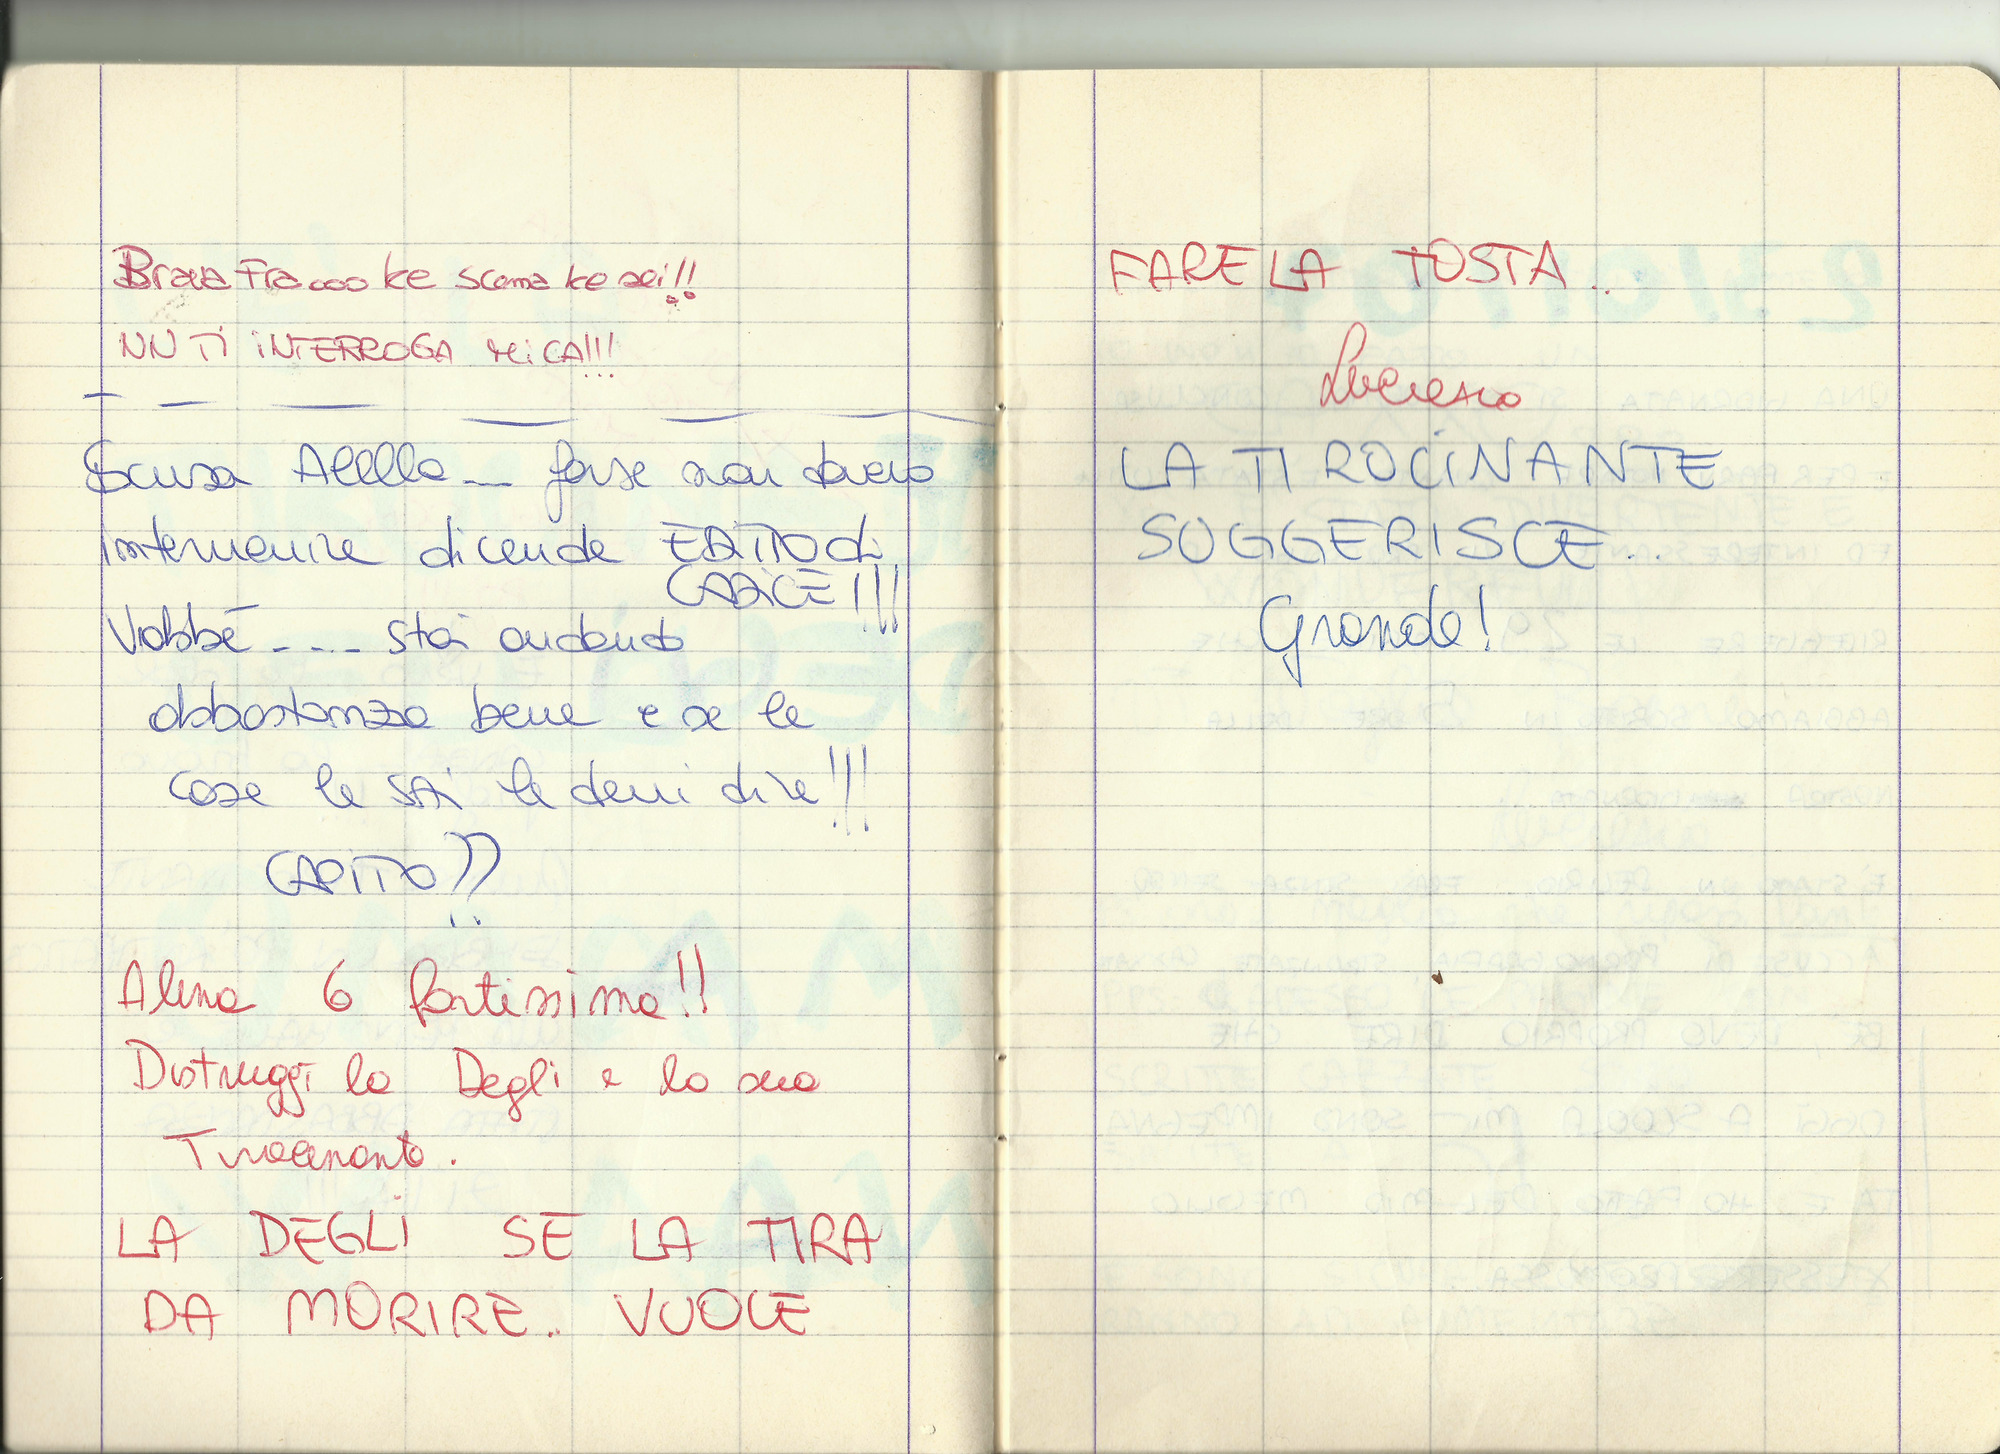 Brava Fra.... ke scema ke sei!!
NN TI INTERROGA MICA!!!
Scusa Alella... forse non dovevo
intervenire dicendo EDITTO di
CADICE!!!
Vabbé .... stai andando
abbastanza bene e se le
cose le sai le devi dire!!!
CAPITO??
Alena 6 fortissima!!
Distruggi la Degli e la sua
Tirocinante.
LA DEGLI SE LA TIRA
DA MORIRE.. VUOLE
FARE LA TOSTA..
LA TIROCINANTE
SUGGERISCE..
Grande!